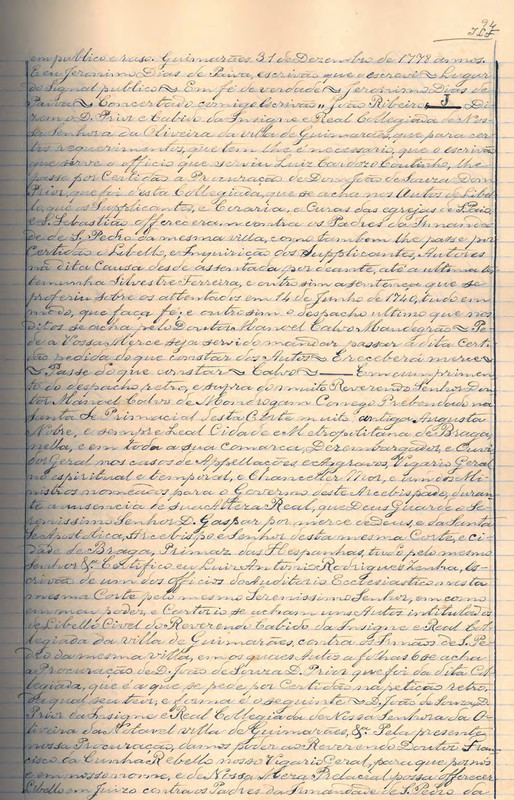 94
em publico e raso. Guimarães 31 de Dezembro de 1778 annos.
E eu Jeronimo Dias de Paiva, escrivão que o escrevi ~ Lugar
do Signal publico ~ Em fé de verdade ~ Jeronimo Dias de
Paiva ~ Concertado comigo Escrivão, João Ribeiro. Di-
zem o D. Prior e Cabido da Insigne e Real Collegiada de Nos-
sa Senhora da Oliveira da villa de Guimarães, que para cer-
tos requerimentos, que tem lhe é necessario, que o escrivão
que serve o officio que serviu Luiz Cardozo Coutinho, lhe
passe por Certidão a Procuração de Dom João de Souza Dom
Prior, que foi desta Collegiada, que se acha nos Autos de Libel-
lo, que os Supplicantes, e Coraria, e Curas das egrejas de S. Paio
e S. Sebastião offereceram contra os Padres da Irmanda-
de de S. Pedro da mesma villa, como tambem lhe passe por
Certidão o Libello, e Inquirição dos Supplicantes, Autores
na dita Causa desde assentada por deante, até a ultima tes-
temunha Silvestre Ferreira, e outro sim a sentença que se
proferiu sobre os attentados em 14 de Junho de 1746, tudo em
modo, que faça fé; e outro sim o despacho ultimo que nos
ditos se acha pelo Doutor Manoel Calvo Mandegrão ~ Pe-
de a Vossa Mercê seja servido mandar passar a dita Certi-
dão pedida do que constar dos Autos ~ E receberá mercê ~
~ Passe do que constar ~ Calvo ~ Em cumprimen-
to do despacho retro, e supra do muito Reverendo Senhor Dou-
tor Manoel Calvo de Mondragam Conego Prebendado na
Santa Sé Primacial desta Corte muito antiga, Augusta
Nobre, e sempre Leal Cidade e Metropolitana de Braga,
nella, e em toda a sua comarca, Dezembargador, e Ouvi-
dor Geral nos casos de Appellações e Aggravos, Vigario Geral
no espiritual e temporal, e Chanceller Mor, e um dos Mi-
nistros nomeados para o Governo deste Arcebispado, duran-
te a ausencia de sua Alteza Real, que Deus Guarde o Se-
renissimo Senhor D. Gaspar, por mercê de Deus, e da Santa
Sé Apostolica, Arcebispo e Senhor desta mesma Corte, e ci-
dade de Braga, Primaz das Hespanhas, tudo pelo mesmo
Senhor &ª Certifico eu Luiz Antonio Rodrigues Es-
crivão de um dos officios do Auditorio Ecclesiastico nesta
mesma Corte pelo mesmo Serenissimo Senhor, em como
em meu poder, e Cartorio se acham uns Autos intitulados
de Libello Civel do Reverendo Cabido da Insigne e Real Col-
legiada da villa de Guimarães, contra os Irmãos de S. Pe-
dro da mesma villa, em os quaes Autos a folhas 6 se acha
a Procuração de D. João de Souza D. Prior que foi da dita Col-
legiada, que é a que se pede por Certidão na petição retro,
da qual seu teor, e forma é o seguinte ~ D. João de Souza D.
Prior da Insigne e Real Collegiada de Nossa Senhora da O-
liveira da Notavel villa de Guimarães, &ª Pela presente
nossa Procuração, damos poder ao Reverendo Doutor Fran-
cisco da Cunha Rebello nosso Vigario Geral, para que por nós
e em nosso nome, e da Nossa Meza Prelacial possa offerecer
Libello em Juizo contra os Padres da Irmandade de S. Pedro da